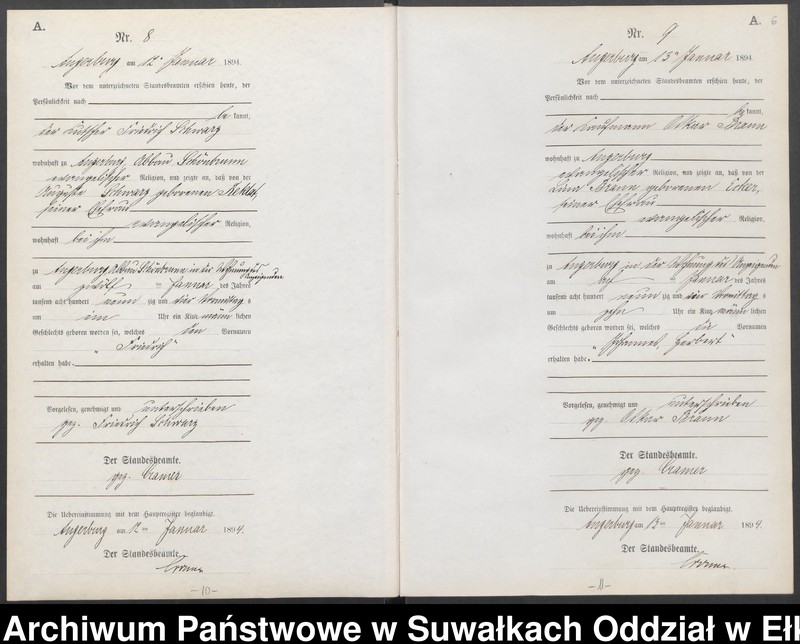 A.
Nr. 8
Angerburg am 12ten Januar 1894.
Vor dem unterzeichneten Standesbeamten erschien heute, der
Persönlichkeit nach
be kannt,
der Kutscher Friedrich Schwarz
wohnhaft zu Angerburg Abbau Schönbrunn
evangelischer Religion, und zeigte an, daß von der
Auguste Schwarz geborenen
seiner Ehefrau
evangelischer Religion,
wohnhaft bei ihm
zu Angerburg Abbau Schönbrunn in der Wohnung des Anzeigenden
am zwölf ten Januar des Jahres
tausend acht hundert neun zig und vier Vormittag s
um ein Uhr ein Kind männ lichen
Geschlechts geboren worden sei, welches den Vornamen
"Friedrich"
erhalten habe.
Vorgelesen, genehmigt und unterschrieben
gez. Friedrich Schwarz
Der Standesbeamte.
gez. Cramer
Die Uebereinstimmung mit dem Hauptregister beglaubigt.
Angerburg am 12ten Januar 1894.
Der Standesbeamte.
Cramer
-10-
A. 6
Nr. 9
Angerburg am 13ten Januar 1894
Vor dem unterzeichneten Standesbeamten erschien heute, der
Persönlichkeit nach
be kannt,
der Kaufmann Oskar Braun
wohnhaft zu Angerburg
evangelischer Religion, und zeigte an, daß von der
Braun geborenen Ecker,
seiner Ehefrau
evangelischer Religion,
wohnhaft bei ihm
zu Angerburg in der Wohnung des Anzeigenden
am ten Januar des Jahres
tausend acht hundert neun zig und vier Vormittag s
um zehn Uhr ein Kind männ lichen
Geschlechts geboren worden sei, welches die Vornamen
"Johannes, Herbert"
erhalten habe.
Vorgelesen, genehmigt und unterschrieben
gez. Oskar Braun
Der Standesbeamte.
gez. Cramer
Die Uebereinstimmung mit dem Hauptregister beglaubigt.
Angerburg am 13ten Januar 1894.
Der Standesbeamte.
Cramer
-11-
Archiwum Państwowe w Suwałkach Oddział w Eł